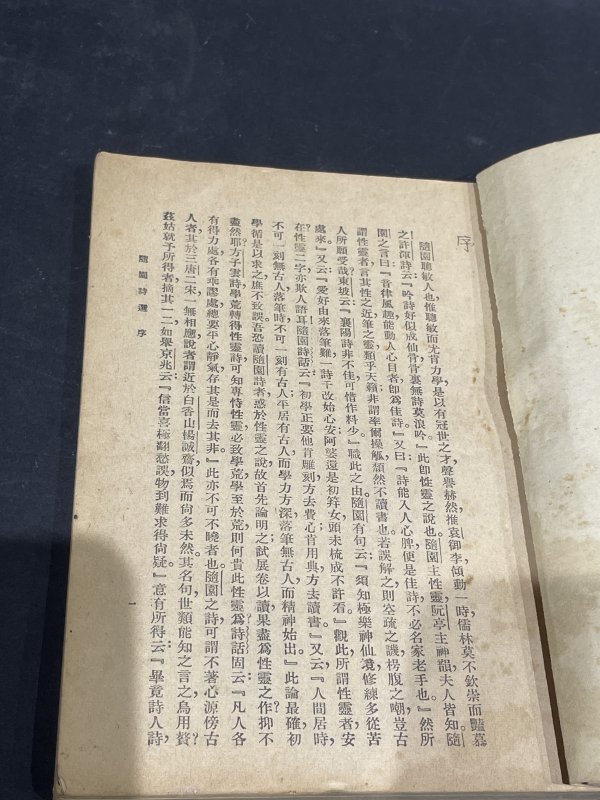 序
隨園聰敏人也惟聰敏而尤肯力學是以有冠世之才聲譽赫然推袁御李傾動一時儒林莫不欽崇而豔慕
之許渾詩云『吟詩好似成仙骨骨裏無詩莫浪吟』此卽性靈之說也隨園主性靈阮亭主神韻夫人皆知隨
園之言曰『音律風趣能動人心目者卽爲佳詩』又曰『詩能入人心脾便是佳詩不必名家老手也』然所
謂性靈者言其性之近筆之靈類乎天籟非謂率爾操觚頹然不讀書也若誤解之則空疏之譏枵腹之嘲豈古
人所願受哉東坡云『襄陽詩非不佳可惜作料少』職此之由隨園有句云：『須知極樂神仙境修練多從苦
處來』又云『愛好由來落筆難一詩千改始心安阿婆還是初笄女頭未梳成不許看』觀此所謂性靈者安
在性靈二字亦欺人語耳隨園詩話云『初學正要他肯雕刻方去費心肯用典方去讀書』又云『人閒居時
不可一刻無古人落筆時不可一刻有古人平居有古人而學力方深落筆無古人而精神始出』此論最確初
學循是以求之庶不致誤吾恐讀隨園詩者惑於性靈之說故首先論明之試展卷以讀果盡爲性靈之作抑不
盡然耶方子雲詩學荒轉得性靈詩可知專恃性靈必致學荒學至於荒則何貴此性靈爲詩話固云『凡人各
有得力處各有乖謬處總要平心靜氣存其是而去其非』此亦不可不曉者也隨園之詩可謂不著心源傍古
人者其於三唐二宋一無相應說者謂近於白香山楊誠齋似焉而尙多未然其名句世類能知之言之烏用贅
茲姑就予所得者摘其一二如舉京兆云：『信當喜極翻愁誤物到難求得尙疑』意有所得云『畢竟詩人詩
隨園詩選　序
一